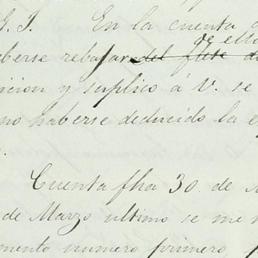 G. I. En la cuenta d
de ella
berse rebajar del flete de
icion y suplico á V. se
no haberse deducido la e
Cuenta fha 30. de
de Marzo ultimo se me
mento numero primero